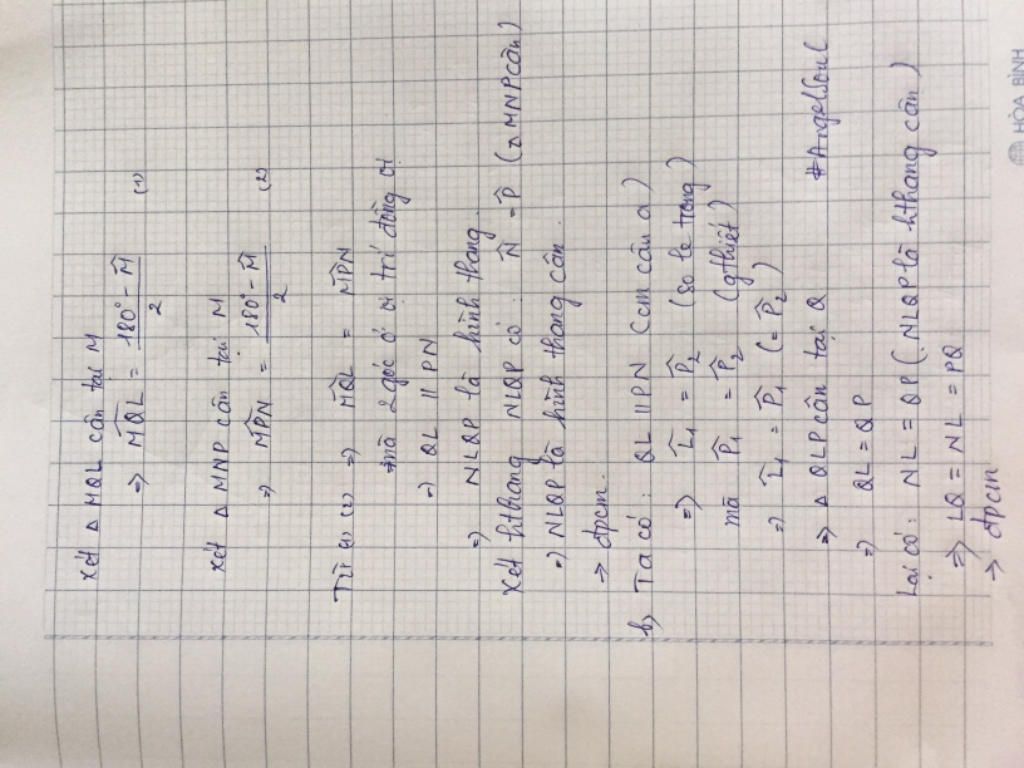 Xét △ MQL cân tại M
=) M̂QL = 180° - M̂ / 2 (1)
Xét △ MNP cân tại M
=) M̂PN = 180° - M̂ / 2 (2)
Từ (1) (2) =) M̂QL = M̂PN
mà 2 góc ở vị trí đồng vị
=) QL // PN
=) NLQP là hình thang.
Xét hthang NLQP có: N̂ = P̂ (△ MNP cân)
=) NLQP là hình thang cân.
→ đpcm.
b, Ta có: QL // PN (cm câu a)
=) L̂1 = P̂2 (so le trong)
mà P̂1 = P̂2 (gthiết)
=) L̂1 = P̂1 (= P̂2)
=) △ QLP cân tại Q
=) QL = QP
#AngelSoul
Lại có: NL = QP (NLQP là hthang cân)
=) LQ = NL = PQ
→ đpcm
HÒA BÌNH